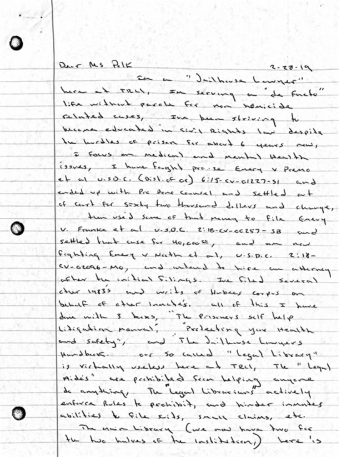 Dear Ms Polk 2-28-19
I'm a "Jailhouse Lawyer"
here at TRCI, I'm serving a "de facto"
life without parole for non homicide
related cases, I've been striving to
become educated in Civil Rights law despite
the hurdles of prison for about 6 years now,
I focus on medical and mental Health
issues, I have fought pro-se Emery v Premo
et al U.S.D.C. (Dist. of Or) 6:15-CV-01227-SI and
ended up with Pro Bono Counsel and settled out
of court for sixty two thousand dollars and change,
then used some of that money to File Emery
v. Franke et al U.S.D.C 2:18-CV-00257-SB and
settled that case for 40,000.00, and am now
fighting Emery v Nooth et al, U.S.D.C. 2:18-
and intend to hire an attorney
after the initial filings. I've filed several
other 1983's and writs of Habeas Corpus on
behalf of other inmates. all of this I have
done with 3 books, "The Prisoners self help
Litigation manual", "Protecting your Health
and safety", and "The Jailhouse Lawyers
Handbook. our so called "Legal Library"
is virtually useless here at TRCI, The "Legal
Aides" are prohibited from helping anyone
do anything. The Legal Librarians actively
enforce Rules to prohibit, and hinder inmates
abilities to file suits, small claims, etc.
The main Library (we now have two for
the two halves of the institution,) here is